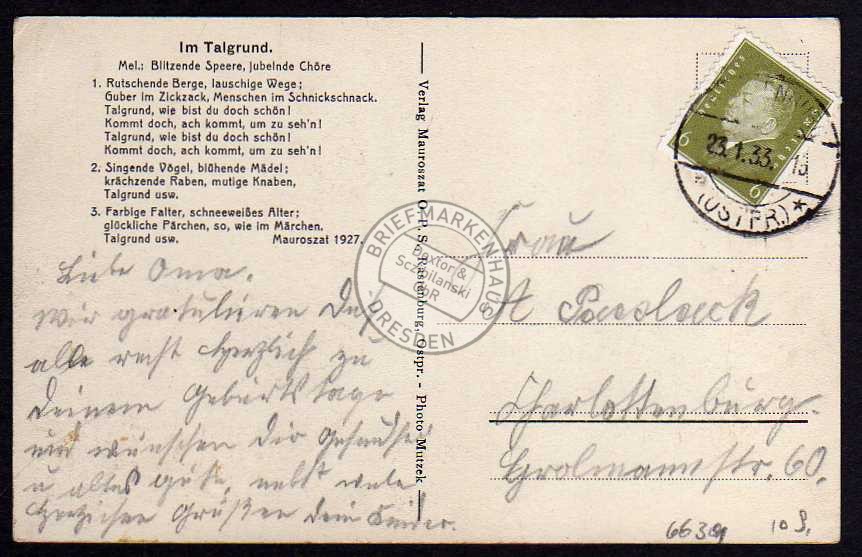 Im Talgrund.
Mel.: Blitzende Speere, jubelnde Chöre
1. Rutschende Berge, lauschige Wege;
Guber im Zickzack, Menschen im Schnickschnack.
Talgrund, wie bist du doch schön!
Kommt doch, ach kommt, um zu seh'n!
Talgrund, wie bist du doch schön!
Kommt doch, ach kommt, um zu seh'n!
2. Singende Vögel, blühende Mädel;
krächzende Raben, mutige Knaben,
Talgrund usw.
3. Farbige Falter, schneeweißes Alter;
glückliche Pärchen, so, wie im Märchen.
Talgrund usw. Mauroszat 1927.
Liebe Oma.
Wir gratulieren Dir
alle recht herzlich zu
Deinem Geburtstage
und wünschen Dir
u alles gute, nebst viele
herzlichen Grüßen Dein Kinder.
Verlag Mauroszat O. P. S. Rastenburg, Ostpr. - Photo Mutzek
BRIEFMARKENHAUS
Doxtor &
Sczibilanski
GbR
DRESDEN
6
6
23.1.33.
(OSTPR.)
Frau
A
Charlottenburg.
Grolmannstr. 60.
10